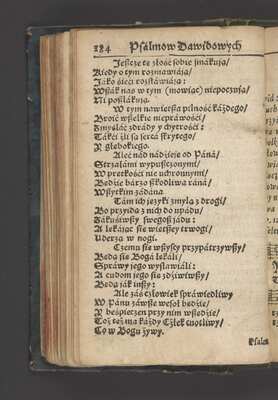 184 Psalmow Dawidowych
Jeszcze tę złość sobie smakują/
Kiedy o tym rozmawiają/
Jako sieci rozstawiają:
Wszak nas w tym (mowiąc) niepoczują/
Ni poszlakują.
W tym nawiętsza pilność każdego/
Broić wszelkie nieprawości/
Zmyślać zdrady y chytrości:
Takci ili są serca skrytego/
Y głębokiego.
Ale ć nad nadzieie od Pana/
Strzałami wypuszczonymi/
W prętkości nie uchronnymi/
Będzie barzo szkodliwa rana/
Wszytkim zadana.
Tam ich języki zmylą z drogi/
Bo przyidą z nich do upadu/
Zakusiwszy swego jadu:
A lękając się więtszey trwogi/
Uderzą w nogi.
Czemu się wszyscy przypatrzywszy/
Będą się Boga lękali/
Sprawy jego wysławiali:
A cudom jego się zdziwiwszy/
Będą jak inszy:
Ale zaś człowiek sprawiedliwy
W Panu zawsze wesoł będzie/
Y bespieczen przy nim wszędzie/
Toż też ma każdy Człek cnotliwy/
Co w Bogu żywy.
Psalm